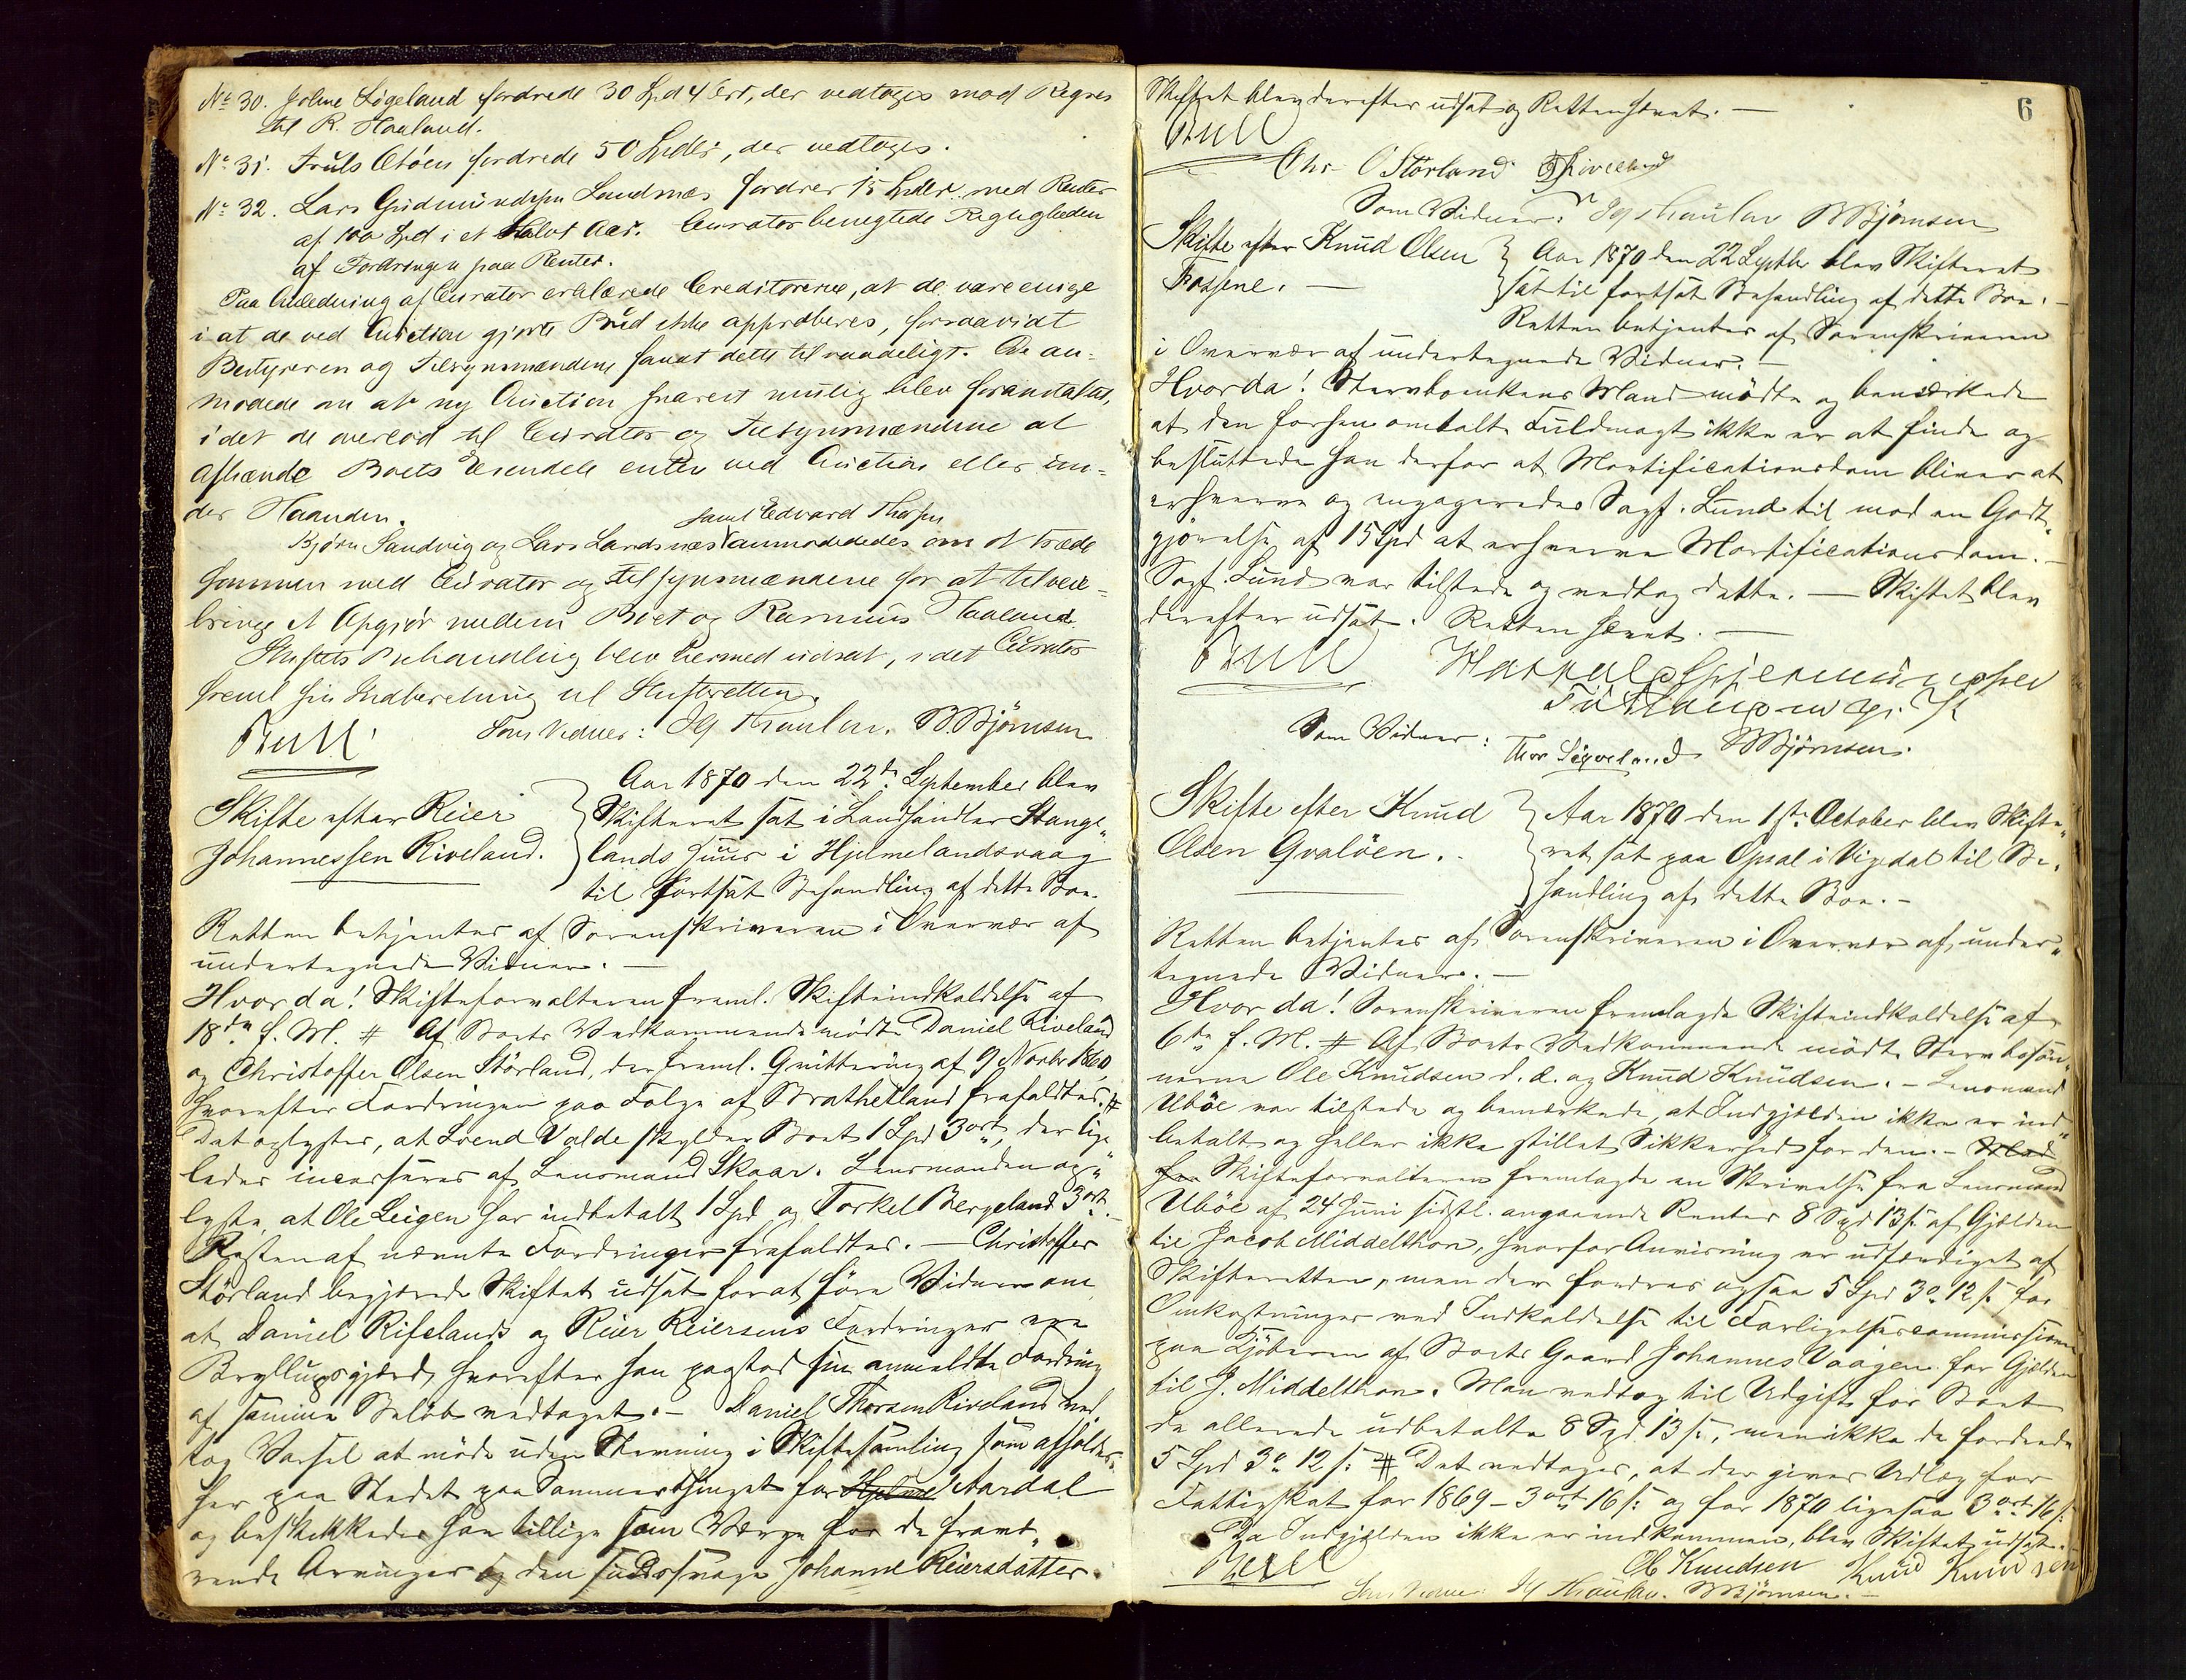 No 30. Johne Sögeland fordrede 30 Spd 4 Ort, der vedtoges mod Regres
til R. Haaland.
No 31. Truls Otöen fordrede 50 Spdlr, der vedtoges.
No 32. Lars Gudmundsen Landsnæs fordrer 15 Spdlr med Renter
af 100 Spd i et Halvt Aar. Curator benegtede Rigtigheden
af Fordringen paa Renter.
Paa Anledning af Curator erklærede Creditorerne, at de vare enige
i at de ved Auction gjorte Bud ikke approberes, forsaavidt
Bestyreren og Tilsynsmændene fandt dette tilraadeligt. De an-
modede om at ny Auction snarest mulig blev foranstaltet,
idet de overlod til Curator og Tilsynsmændene at
afhænde Boets Eiendele enten ved Auction eller un-
der Haanden.
samt Edvard Thorsen
Björn Sandvig og Lars Landsnæs anmodedes om at træde
sammen med Curator og Tilsynsmændene for at tilveie-
bringe et Opgjör mellem Boet og Rasmus Haaland.
Skiftets Behandling blev hermed udsat, idet Curator
freml. sin Indberetning til Skifteretten.
Bull
Som Vidner: Jg Thaulow. B. Björnsen
Skifte efter Reier
Johannessen Riveland.
Aar 1870 den 22de September blev
Skifteret sat i Landhandler Stange„
lands Huus i Hjelmelandsvaag
til fortsat Behandling af dette Boe.
Retten betjentes af Sorenskriveren i Overvær af
undertegnede Vidner. —
Hvor da! Skifteforvalteren freml. Skifteindkaldelse af
18de f. M. # Af Boets Vedkommende mödte Daniel Riveland
og Christoffer Olsen Störland, der freml. Quittering af 9 Novbr 1860,
hvorefter Fordringen paa Folge af Brathetland frafaldtes. #
Det oplystes, at Svend Valde skylder Boet 1 Spd 3 ort, der lige
ledes incasseres af Lensmand Skaar. Lensmanden op„
lyste, at Ole Leigen har indbetalt 1 Spd og Torkel Bergeland 3 ort. —
Resten af nævnte Fordringer frafaldtes. — Christoffer
Störland begjærede Skiftet udsat for at före Vidner om
at Daniel Rifelands og Reier Reiersens Fordringer ere
Bryllupsgjæld, hvorefter han paastod sin anmeldte Fordring
af samme Belöb vedtaget. — Daniel Thorsen Riveland ved
tog Varsel at möde uden Stevning i Skiftesamling som afholdes
her paa Stedet paa Sommerthinget for Hjelme Aardal
og beskikkedes han tillige som Værge for de fravæ„
rende Arvinger og den sindssvage Johanne Reiersdatter.
6
Skiftet blev derefter udsat og Retten hævet. —
Bull
Chr. O Störland DTRiveland
Som Vidner: Jg Thaulow BBjörnsen
Skifte efter Knud Olsen
Fossene. —
Aar 1870 den 22 Septbr blev Skifteret
sat til fortsat Behandling af dette Boe. —
Retten betjentes af Sorenskriveren
i Overvær af undertegnede Vidner. —
Hvor da! Stervboenkens Mand mödte og bemærkede
at den forhen omtalte Fuldmagt ikke er at finde og
besluttede han derfor at Mortificationsdom bliver at
erhverve og engageredes Sagf. Lund til mod en Godt„
gjörelse af 15 Spd at erhverve Mortificationsdom. —
Sagf. Lund var tilstede og vedtog dette. — Skiftet blev
derefter udsat. Retten hævet. —
Bull
Som Vidner: Thor Sigveland BBjörnsen.
Skifte efter Knud
Olsen Gvalöen.
Aar 1870 den 1ste October blev Skifte„
ret sat paa Opsal i Vigedal til Be„
handling af dette Boe. —
Retten betjentes af Sorenskriveren i Overvær af under„
tegnede Vidner. —
Hvor da! Sorenskriveren fremlagde Skifteindkaldelse af
6te f. M. # Af Boets Vedkommende mödte Stervbosön„
nerne Ole Knudsen d. æ. og Knud Knudsen. — Lensmand
Uböe var tilstede og bemærkede, at Indgjælden ikke er ind„
betalt og heller ikke stillet Sikkerhed for den. —
Skifteforvalteren fremlagde en Skrivelse fra Lensmand
Uböe af 24 Juni sidstl. angaaende Renter 8 Spd 13 s. af Gjælden
til Jacob Middelthon, hvorfor Anvisning er udfærdiget af
Skifteretten, men der fordres ogsaa 5 Spd 3 o. 12 s. for
Omkostninger ved Indkaldelse til Forligelsescommissionen
paa Kjöberen af Boets Gaard Johannes Vaagen for Gjælden
til J. Middelthon. Man vedtog til Udgift for Boet
de allerede udbetalte 8 Spd 13 s., men ikke de fordrede
5 Spd 3 o. 12 s: # Det vedtoges, at der gives Udlæg for
Fattigskat for 1869 — 3 ort 16 s: og for 1870 ligesaa 3 ort 16 s:
Da Indgjælden ikke er indkommen, blev Skiftet udsat. —
Bull
Ole Knudsen Knud Knudsen
Som Vidner: Jg Thaulow. BBjörnsen. —